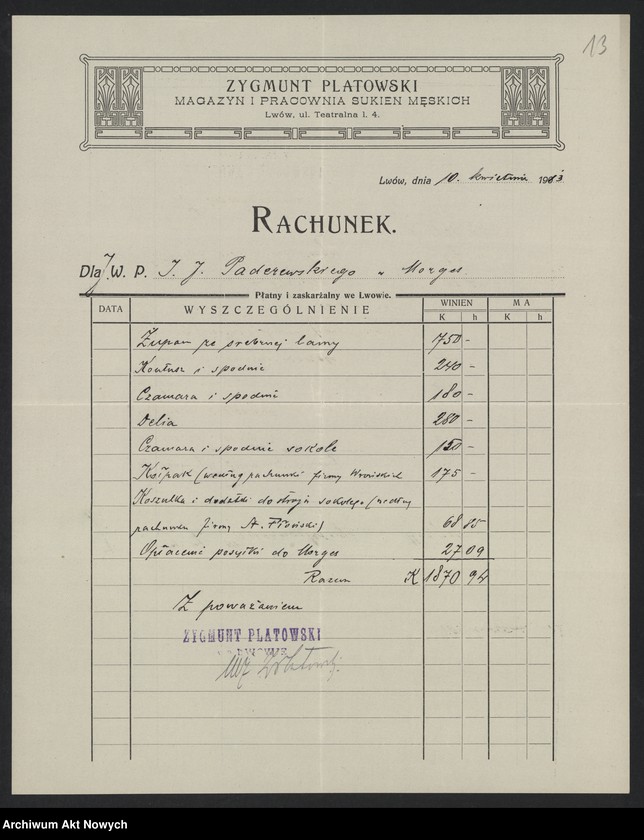 13
ZYGMUNT PLATOWSKI
MAGAZYN I PRACOWNIA SUKIEN MĘSKICH
Lwów, ul. Teatralna l. 4.
Lwów, dnia 10. kwietnia 1913
RACHUNEK.
Dla J. W. P. I. J. Paderewskiego w Morges
Płatny i zaskarżalny we Lwowie.
DATA WYSZCZEGÓLNIENIE WINIEN MA
K h K h
Żupan ze srebrnej lamy 750 -
Kontusz i spodnie 240 -
Czamara i spodnie 180 -
Delia 280 -
Czamara i spodnie sokole 150 -
Kołpak (według rachunku firmy Wrońskich 175 -
Koszulka i dodatki do stroju sokolego (według
rachunku firmy A. 68 85
Opłacenie posyłki do Morges 27 09
Razem K 1870 94
Z poważaniem
ZYGMUNT PLATOWSKI
LWOWIE